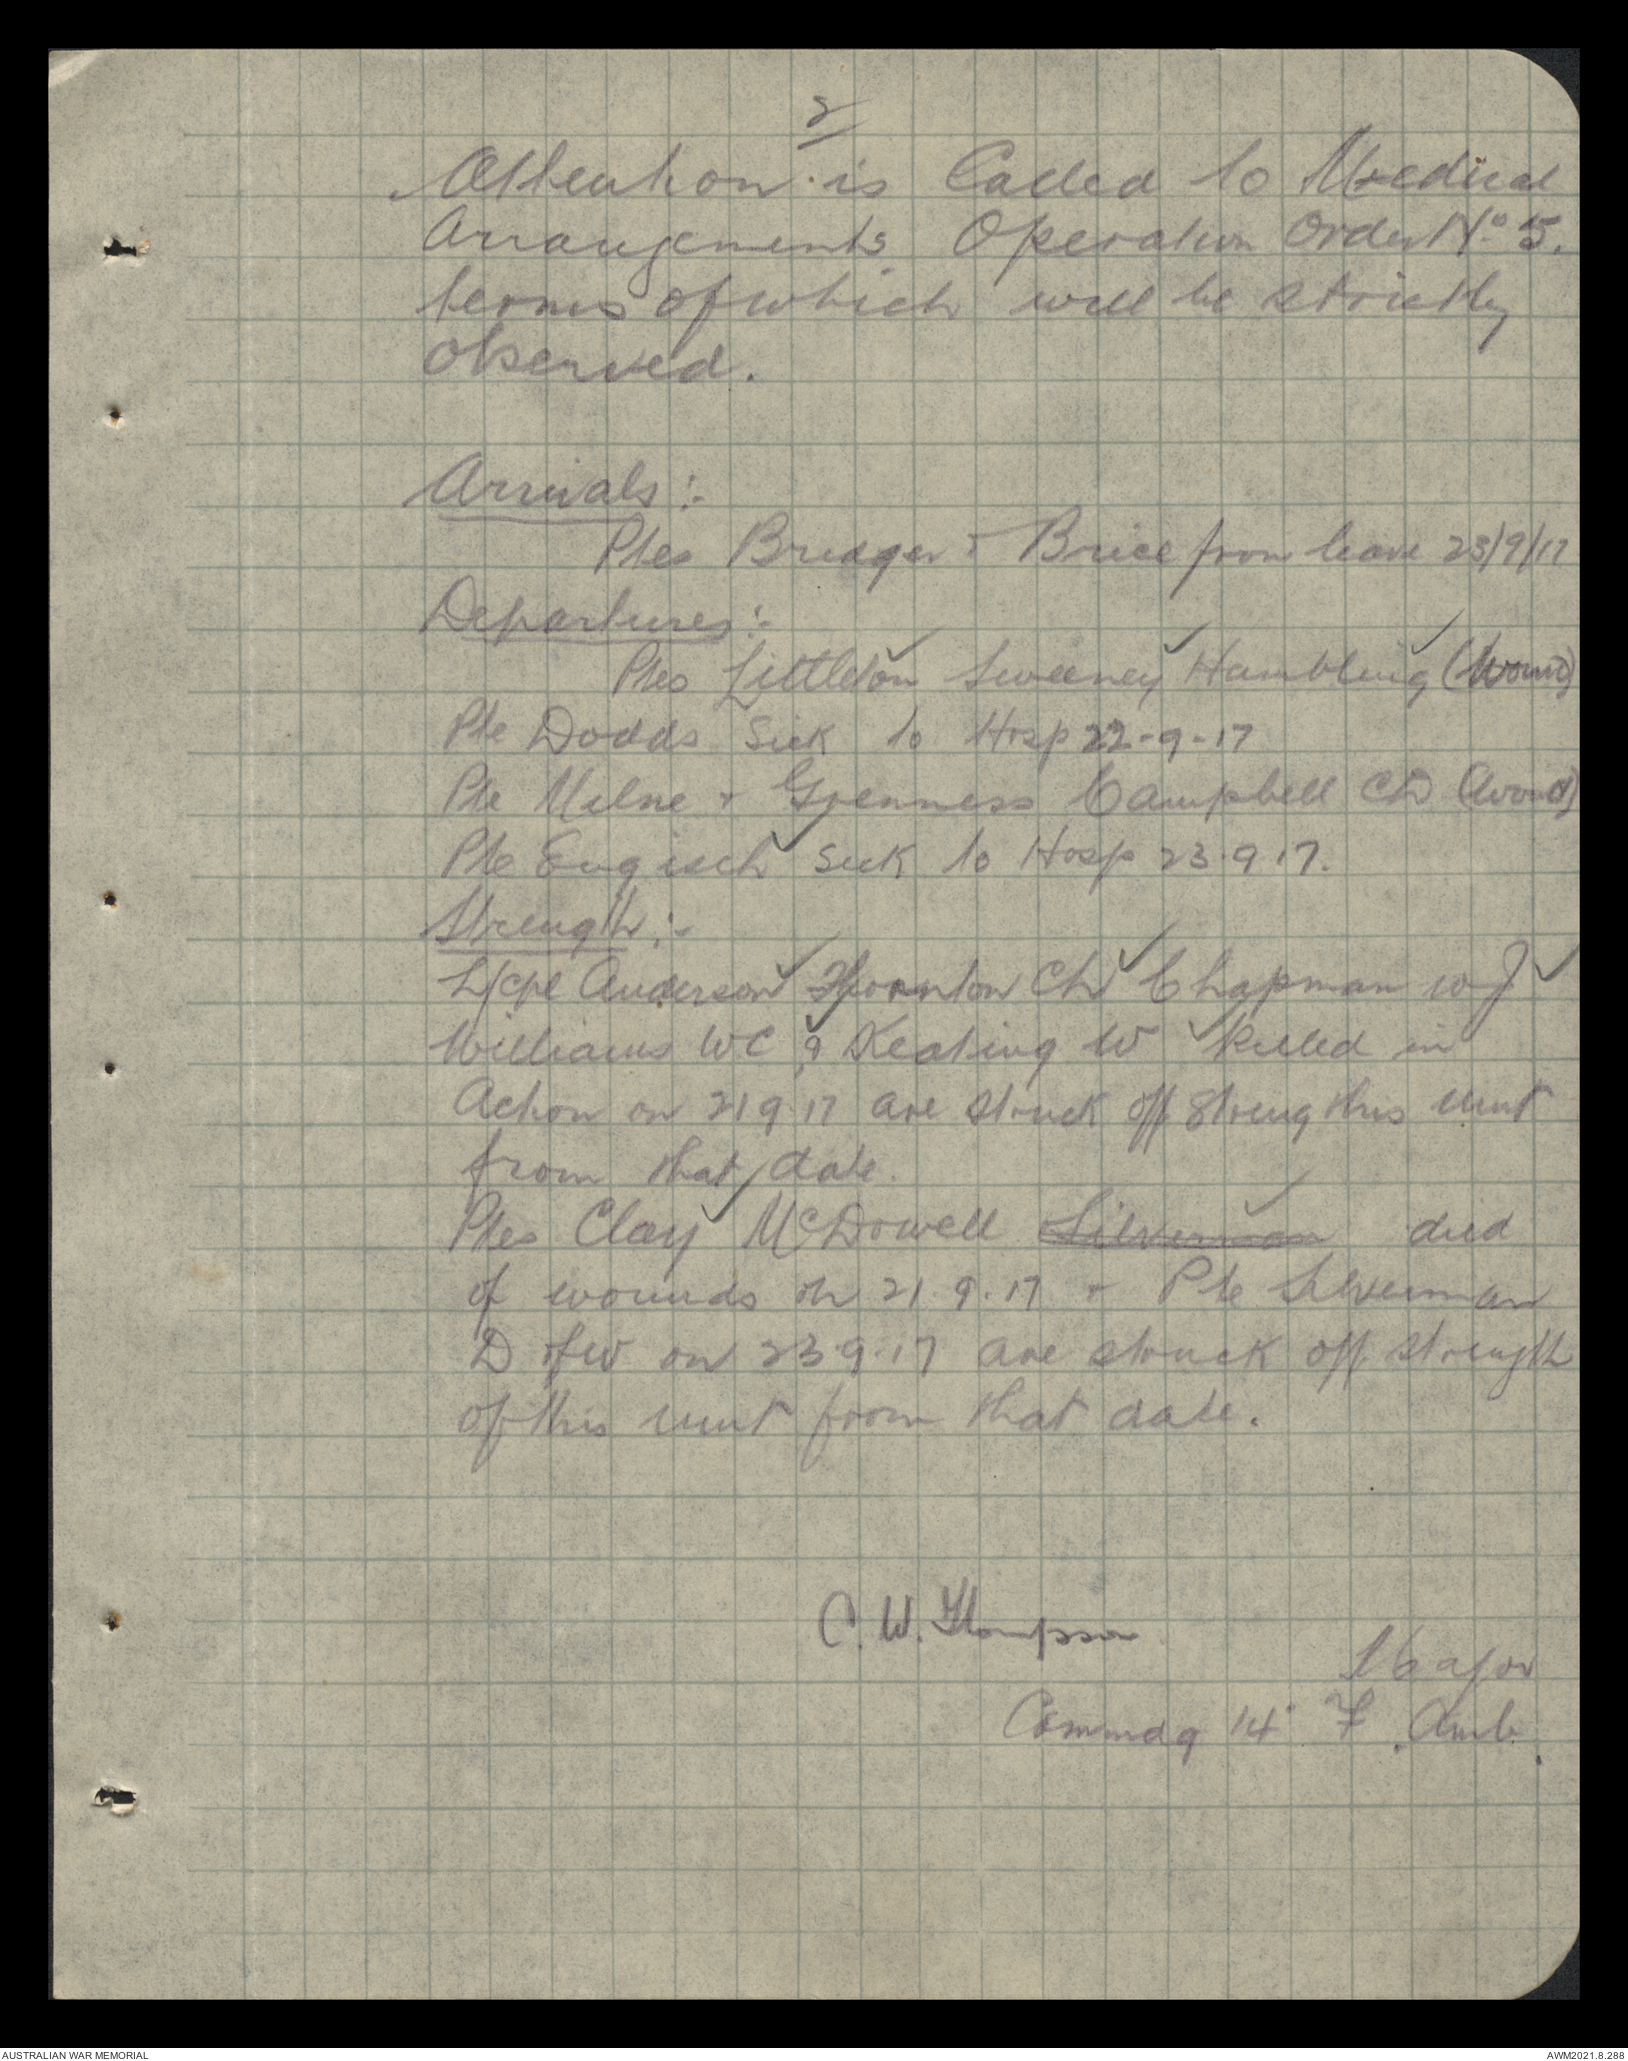 2
Attention is Called to Medical
Arrangements Operation Order No 5.
terms of which will be strictly
observed.
Arrivals :-
Ptes Bridger + Brice from leave 23/9/17
Departures :-
Ptes Littleton ✓ Sweeney ✓ Hambling ✓ (Wound)
Pte Dodds Sick to Hosp 22-9-17
Pte Milne + Grenness Campbell CD (Wound)
Pte Engisch ✓ Sick to Hosp 23.9.17.
Strength :-
L/Cpl Anderson ✓ Thornton CH ✓ Chapman WJ ✓
Williams WC ✓ & Keating W ✓ killed in
Action on 21 9.17 are struck off Streng this unit
from that date.
Ptes Clay ✓ McDowell Silverman ✓ died
of wounds on 21.9.17 + Pte Silverman
D of W on 23.9.17 are struck off strength
of this unit from that date.
C. W. Thompson
Major
Commdg 14 F. Amb.
AUSTRALIAN WAR MEMORIAL
AWM2021.8.288